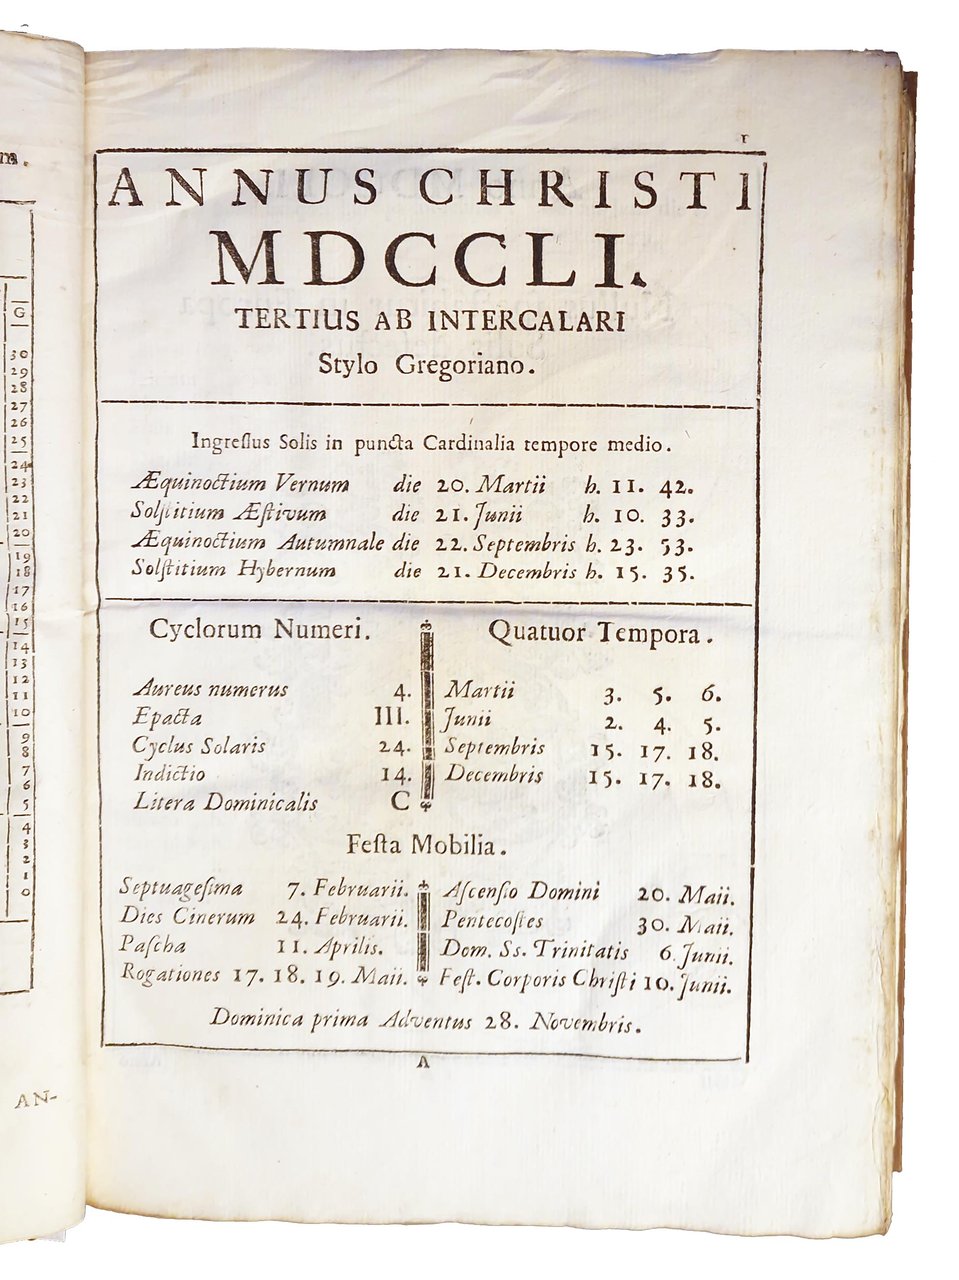 m.
G
30
29
28
27
26
25
24
23
22
21
20
19
18
17
16
15
14
13
12
11
10
9
8
7
6
5
4
3
2
1
0
AN-
1
ANNUS CHRISTI
MDCCLI.
TERTIUS AB INTERCALARI
Stylo Gregoriano.
Ingreſſus Solis in puncta Cardinalia tempore medio.
Æquinoctium Vernum die 20. Martii h. 11. 42.
Solſtitium Æſtivum die 21. Junii h. 10. 33.
Æquinoctium Autumnale die 22. Septembris h. 23. 53.
Solſtitium Hybernum die 21. Decembris h. 15. 35.
Cyclorum Numeri.
Aureus numerus 4.
Epacta III.
Cyclus Solaris 24.
Indictio 14.
Litera Dominicalis C
Quatuor Tempora.
Martii 3. 5. 6.
Junii 2. 4. 5.
Septembris 15. 17. 18.
Decembris 15. 17. 18.
Feſta Mobilia.
Septuageſima 7. Februarii.
Dies Cinerum 24. Februarii.
Paſcha 11. Aprilis.
Rogationes 17. 18. 19. Maii.
Aſcenſio Domini 20. Maii.
Pentecoſtes 30. Maii.
Dom. Ss. Trinitatis 6. Junii.
Feſt. Corporis Chriſti 10. Junii.
Dominica prima Adventus 28. Novembris.
A